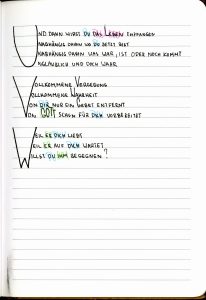 Und dann wirst du das Leben empfangen
Unabhängig davon wo du jetzt bist
Unabhängig davon was war, ist oder noch kommt
Unglaublich und doch wahr
Vollkommene Vergebung
Vollkommene Wahrheit
Von dir nur ein Gebet entfernt
Von GOTT schon für dich vorbereitet
Weil er dich liebt
Weil er auf dich wartet
Willst du ihm begegnen?